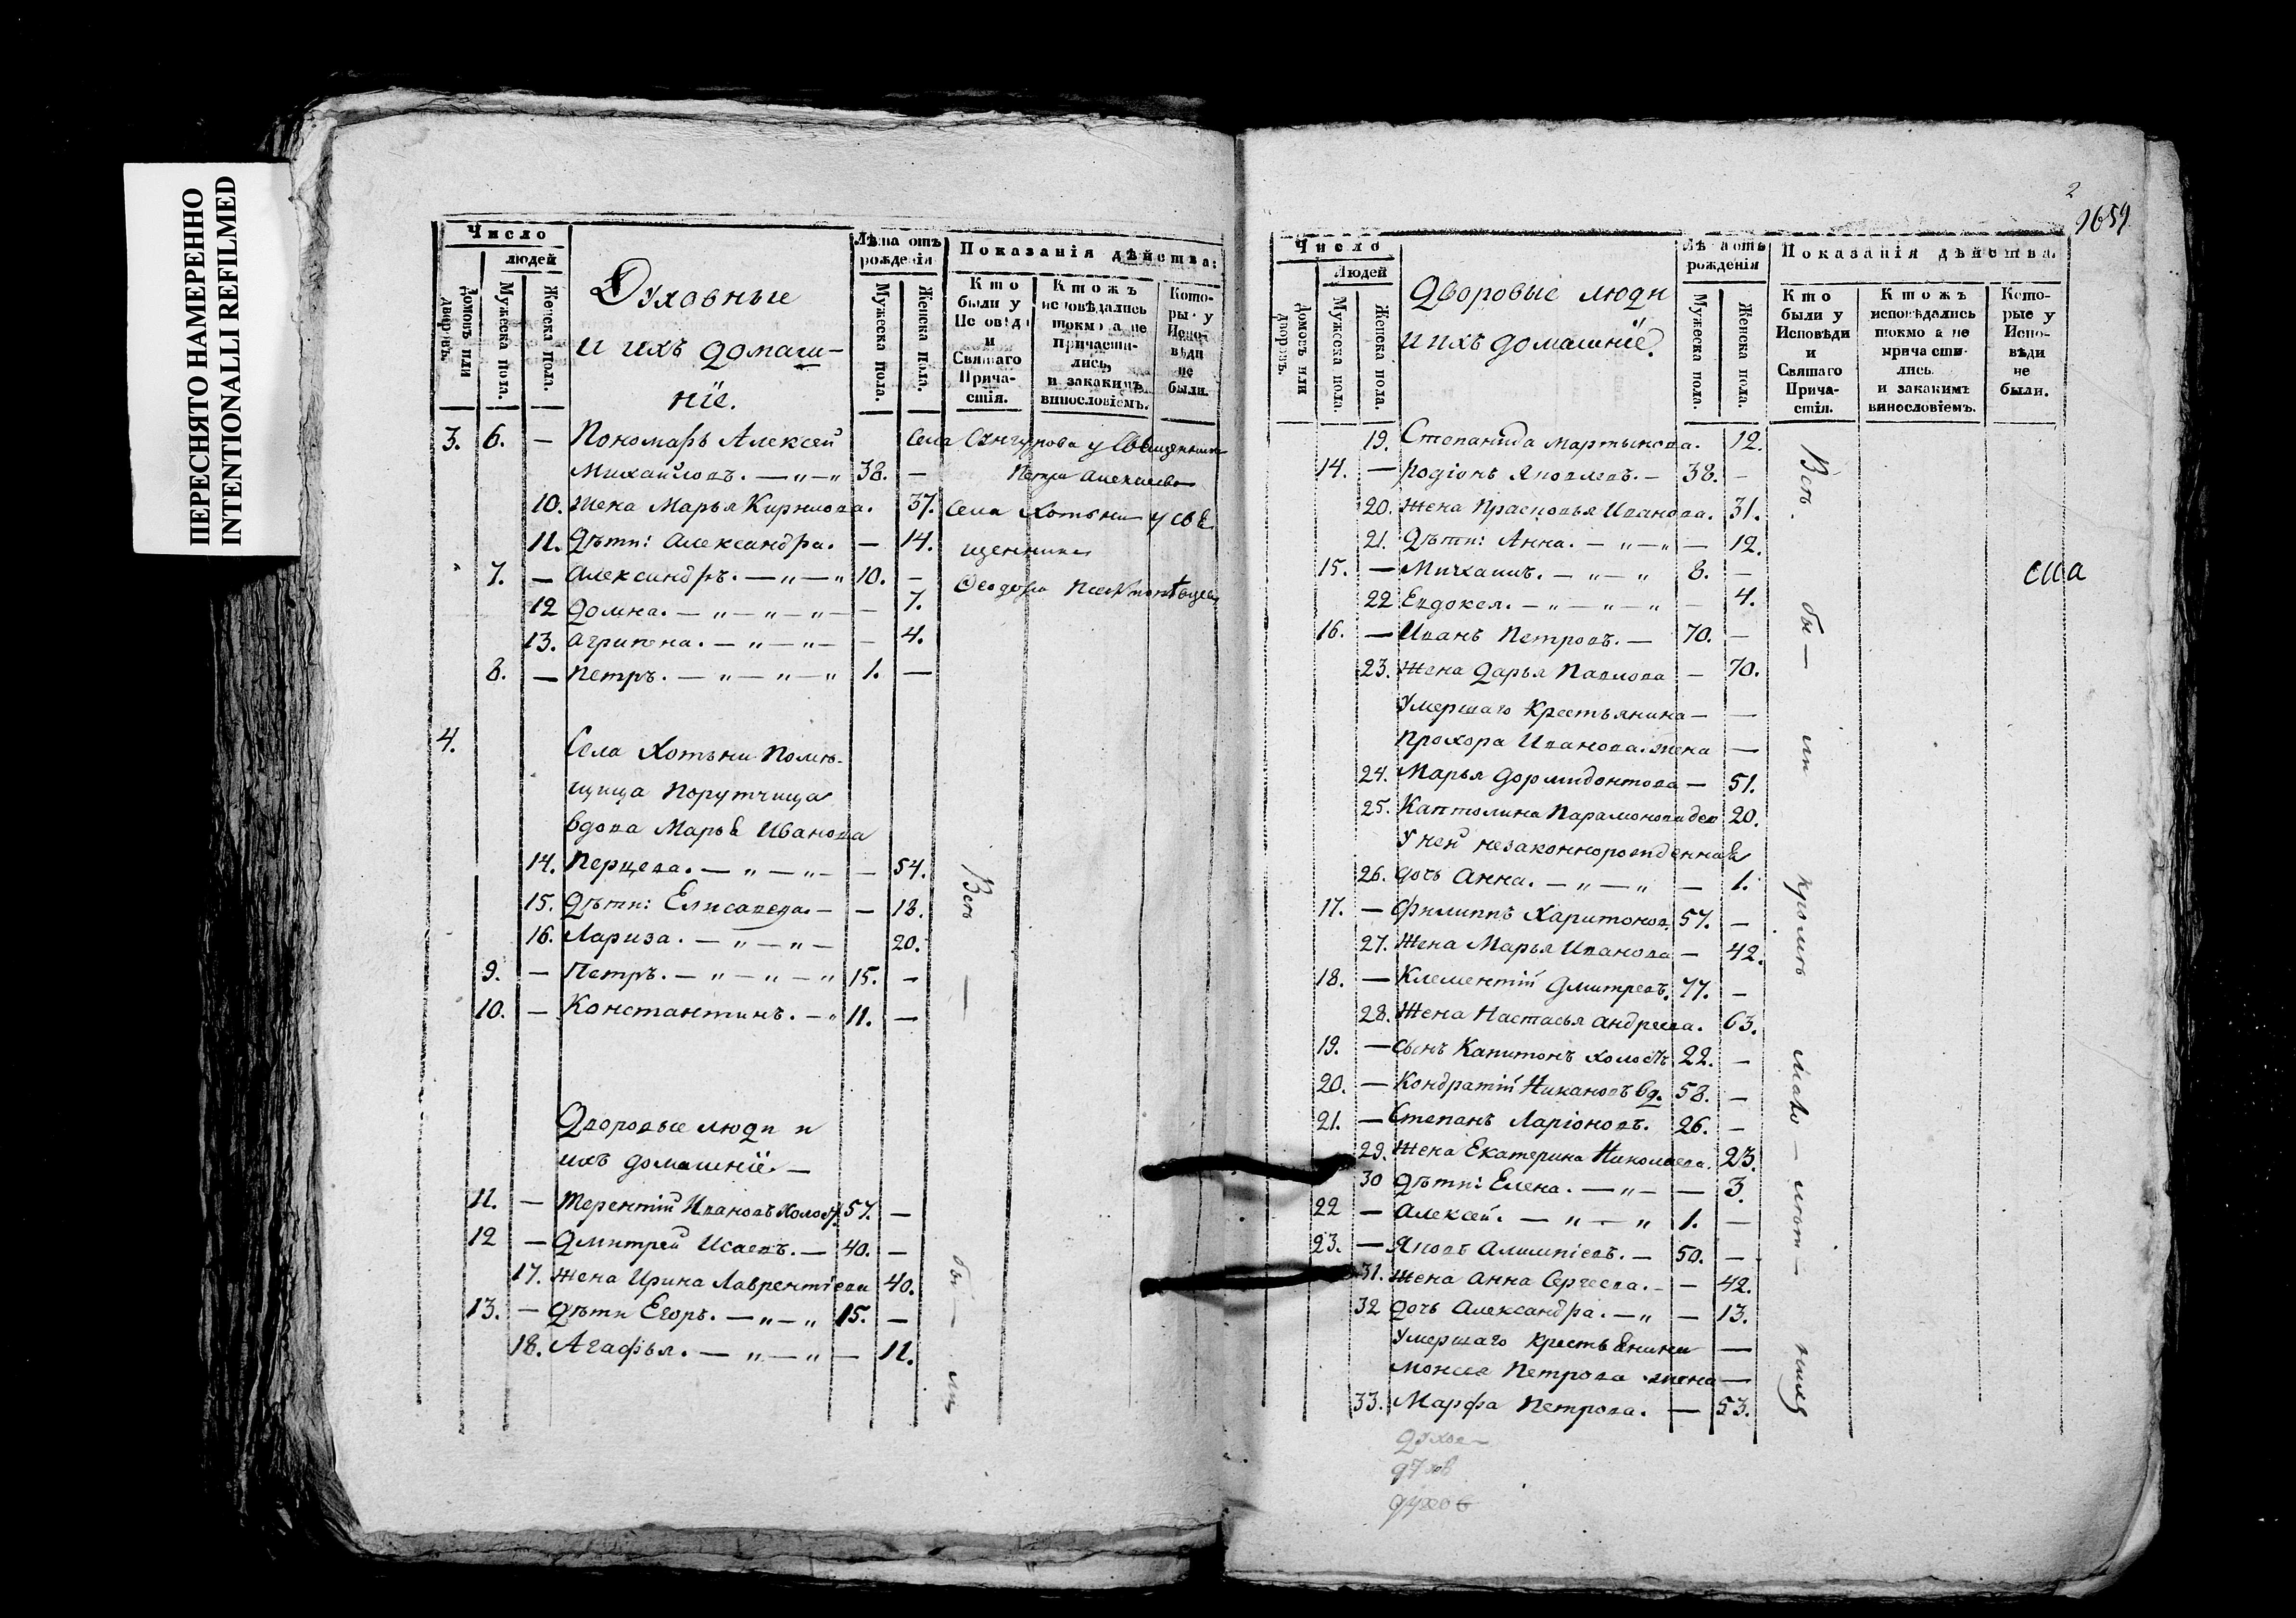 ПЕРЕСНЯТО НАМЕРЕННО
INTENTIONALLI REFILMED
Число
людей
Домовъ или дворовъ.
Мужеска пола.
Женска пола.
Духовные
и ихъ домаш-
нїе.
Лѣта отъ рожденія
Мужеска пола.
Женска пола.
Показанія дѣйства:
Кто были у Исповѣди и Святаго Прича-стія.
Ктожъ исповѣдались токмо а не Причасти-лись, и закакимъ винословіемъ.
Кото-ры у Испо-вѣди не были.
3. 6. — Пономарь Алексей Села Сунгурова у Священника
Михайловъ. — „ — „ 38. — Петра Алексеева
10. Жена Марья Кирилова. 37. Села Хотыни у свя
11. Дѣти: Александра. — 14. щенника
7. — Александръ. — „ — „ 10. — Ѳеодора
12 Домна. — „ — „ — — 7.
13. Агрипена. — „ — „ — — 4.
8. — Петръ. — „ — „ — „ 1. —
4. Села Хотыни Помѣ-
щица Порутчица
вдова Марья Иванова
14. Перцева. — „ — „ — — 54.
15. Дѣти: Елисавета. — — 18.
16. Лариза. — „ — „ — 20.
9. — Петръ. — „ — „ — „ 15. —
10. — Константинъ. — „ 11. —
Дворовые люди и
ихъ домашнїе —
11. — Терентій Ивановъ Холост. 57. —
12 — Дмитрей Исаевъ. — 40. —
17. Жена Ирина Лаврентіева 40.
13. — Дѣти Егоръ. — „ — „ 15. —
18. Агафья. — „ — „ — 11.
Всѣ — бы — ли
2
Число
Людей
Домовъ или дворовъ.
Мужеска пола.
Женска пола.
Дворовые люди
и ихъ домашнїе.
Лѣта отъ рожденія
Мужеска пола.
Женска пола.
Показанія дѣйства.
Кто были у Исповѣди и Святаго Прича-стія.
Ктожъ исповѣдались токмо а не причасти-лись и закакимъ винословіемъ.
Кото-рые у Испо-вѣди не были.
19. Степанида Мартынова. 12.
14. — Родіонъ Яковлевъ. — 38. —
20. Жена Прасковья Иванова. 31.
21. Дѣти: Анна. — „ — „ — 12.
15. — Михаилъ. — „ — „ 8. —
22 Евдокея. — „ — „ — „ — 4.
16. — Иванъ Петровъ. — 70. —
23. Жена Дарья Павлова — 70.
Умершаго Крестьянина — —
Прохора Иванова жена —
24. Марья Дормидонтова — 51.
25. Каптолина Парамонова дев 20.
У ней незаконнорожденная
26. дочь Анна. — „ — „ — 1.
17. — Филиппъ Харитонов. 57. —
27. Жена Марья Иванова — 42.
18. — Клементій Дмитревъ. 77. —
28. Жена Настасья Андреева. 63.
19. — Сынъ Капитонъ холостъ 22. —
20. — Кондратій Никановъ вд. 58. —
21. — Степанъ Ларіоновъ. 26. —
29. Жена Екатерина Николаева. 23.
30 Дѣти: Елена. — „ — — 3.
22 — Алексей. — „ — „ 1. —
23. — Яковъ Алимпіевъ. — 50. —
31. Жена Анна Сергеева. — — 42.
32 Дочь Александра. — „ — 13.
Умершаго Крестьянина —
Моисея Петрова жена —
33. Марфа Петрова. — 53.
Всѣ бы — ли кромѣ мало — лѣт — нихъ
духов
духов